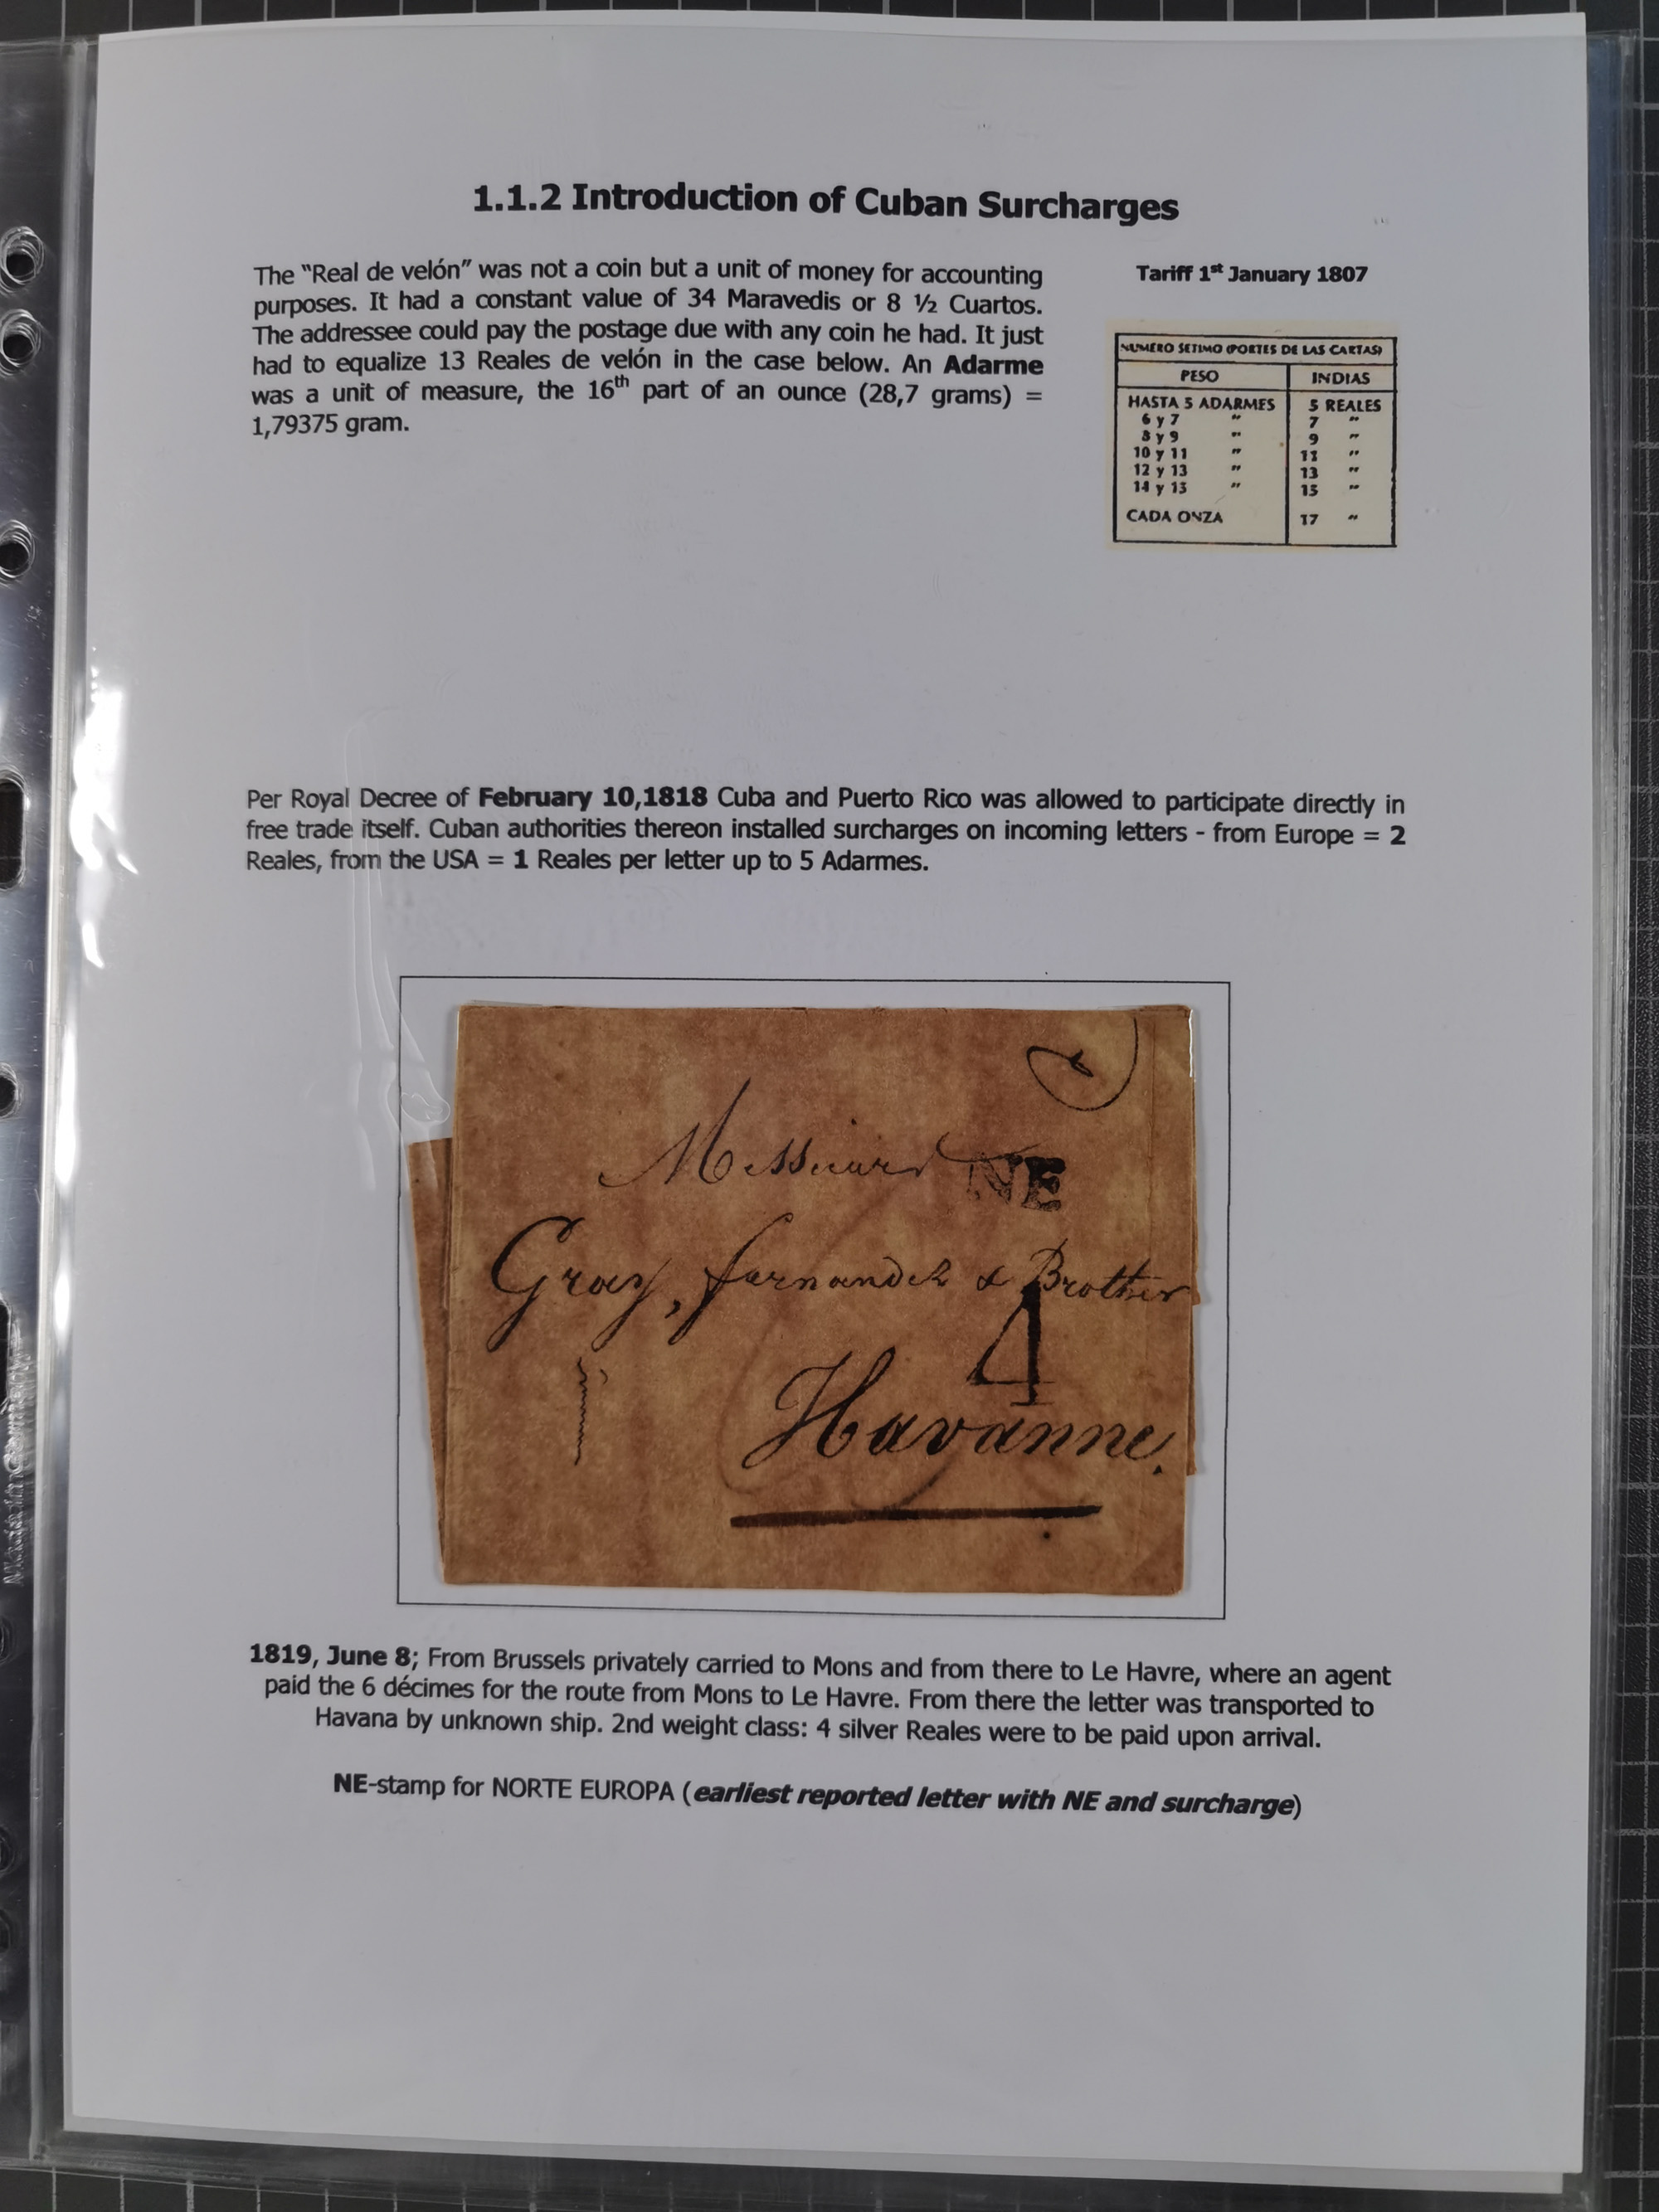 1.1.2 Introduction of Cuban Surcharges
The “Real de velón” was not a coin but a unit of money for accounting
purposes. It had a constant value of 34 Maravedis or 8 ½ Cuartos.
The addressee could pay the postage due with any coin he had. It just
had to equalize 13 Reales de velón in the case below. An Adarme
was a unit of measure, the 16th part of an ounce (28,7 grams) =
1,79375 gram.
Tariff 1st January 1807
NUMERO SETIMO (PORTES DE LAS CARTAS)
PESO INDIAS
HASTA 5 ADARMES 5 REALES
6 y 7 " 7 "
8 y 9 " 9 "
10 y 11 " 11 "
12 y 13 " 13 "
14 y 15 " 15 "
CADA ONZA 17 "
Per Royal Decree of February 10,1818 Cuba and Puerto Rico was allowed to participate directly in
free trade itself. Cuban authorities thereon installed surcharges on incoming letters - from Europe = 2
Reales, from the USA = 1 Reales per letter up to 5 Adarmes.
Messieurs NE
Gray, fernandez & Brother
4
Havanne.
1819, June 8; From Brussels privately carried to Mons and from there to Le Havre, where an agent
paid the 6 décimes for the route from Mons to Le Havre. From there the letter was transported to
Havana by unknown ship. 2nd weight class: 4 silver Reales were to be paid upon arrival.
NE-stamp for NORTE EUROPA (earliest reported letter with NE and surcharge)